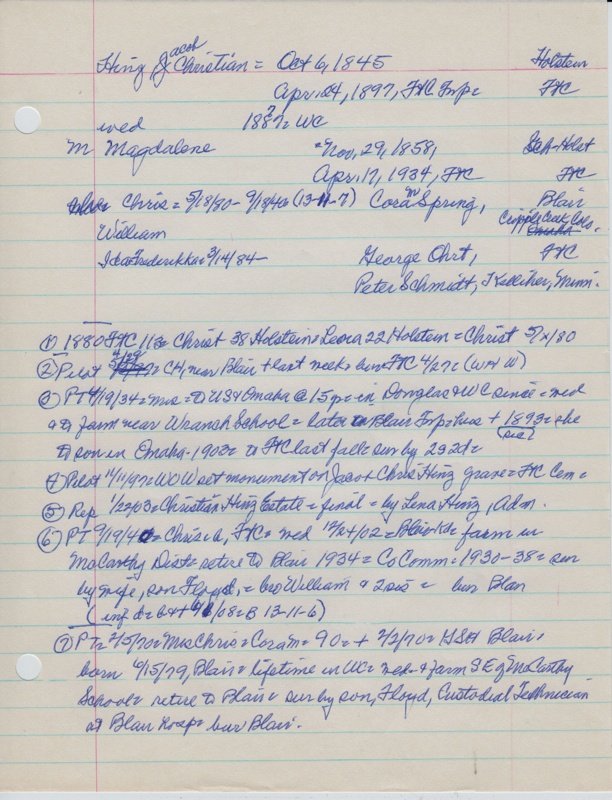 Hing, Jacob Christian = Oct 6, 1845 Holstein
Apr. 24, 1897, FtC Twp = FtC
wed 188?7 = WC
m Magdalene = Nov, 29, 1858, Sch-Holst
Apr. 17, 1934, FtC FtC
Chris = 5/18/80 - 9/18/40 (13-11-7) Cora M Spring, Blair
William Cripple Creek Colo.
Ida Frederikka = 3/14/84 - George Ohrt, FtC
Peter Schmidt, Kelliher, Minn.
① 1880 FtC 118 = Christ 38 Holstein = Lena 22 Holstein = Christ 5/x/80
② Pilot 4/29/97 = CH, near Blair + last week = bur FtC 4/27 = (WOW)
③ PT 4/19/34 = Mrs = to US & Omaha @ 15 yr = in Douglas & WC since = wed
& to farm near Wranch School = later to Blair Twp = hus + 1893 = she
(sic)
& son in Omaha - 1903 = to FtC last fall = sur by 2s 2d =
④ Pilot 11/11/97 = WOW set monument on Jacob Chris Hing grave = FtC Cem =
⑤ Rep 1/22/03 = Christian Hing Estate = final = by Lena Hing, Adm.
⑥ PT 9/19/40 = Chris = b, FtC = wed 12/24/02 = Blair = to farm in
McCarthy Dist = retire to Blair 1934 = Co Comm = 1930-38 = sur
by wife, son Floyd, = bro William & 2 sis = bur Blair
(inf d = b & + 4/ /08 = B 13-11-6)
⑦ PT = 2/5/70 = Mrs Chris = Cora M = 90 = + 2/2/70 = HSH Blair =
born 6/15/79, Blair = lifetime in WC = wed = & farm SE of McCarthy
School = retire to Blair = sur by son, Floyd, Custodial Technician
at Blair Hosp = bur Blair.